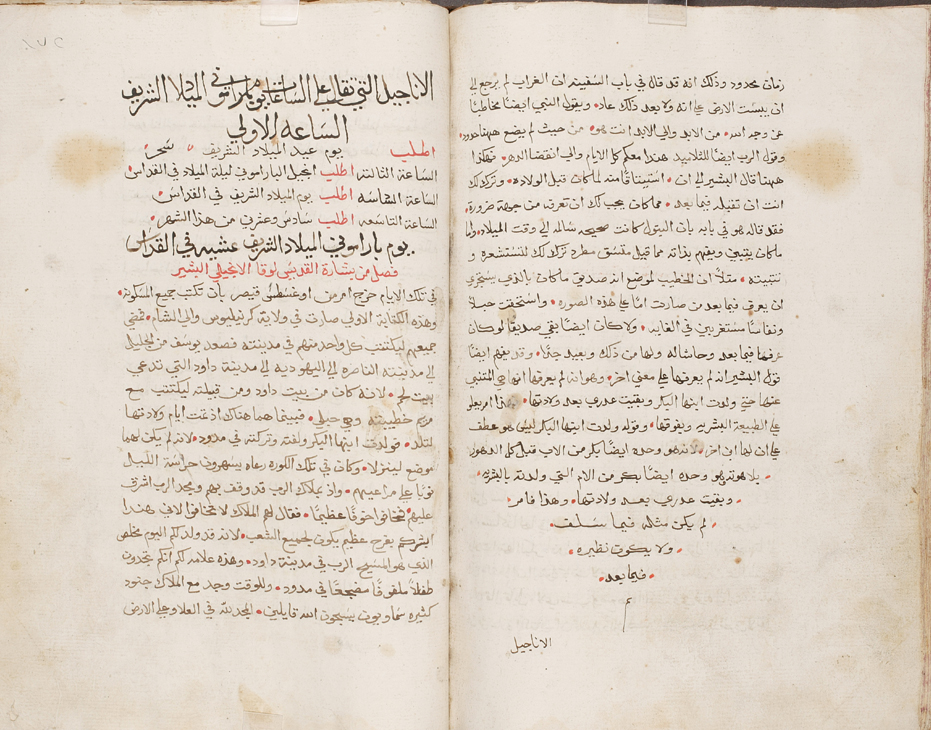 زمان محدود وذلك انه قد قال في باب السفينه ان الغراب لم يرجع الي
ان يبست الارض علي انه ولا بعد ذلك عاد • ويقول النبي ايضًا مخاطبًا
عن وجه الله • من الابد والي الابد انت هو • من حيث لم يضع ههنا حدود •
وقول الرب ايضًا للتلاميد هندا معكم كل الايام والي انقضا الدهر • فهكذا
ههنا قال البشير الي ان • استبينا قامته لما كان قبل الولاده • وتركك
انت ان تقبله فيما بعد • مما كان يجب لك ان تعرفه من جهة ضرورة •
فقد قاله هو في بابه بان البتول كانت صحيحه ساله الي وقت الميلاد • واما
ماكان يقتفي ويفهم بذاته مما قيل متسق مطرد ترك لك لتستشعره و
تتبينه • مثلًا ان الخطيب لموضع انه صديق ماكان بالذي يستجري
ان يعرف فيما بعد من صارت امًا علي هذه الصوره • واستحقت حبلًا
ونفاسًا مستغربين في الغايه • ولا كان ايضًا بقي صديقًا لو كان
عرفها فيما بعد وحاشا له ولها من ذلك وبعيد جدًا • وقد يفهم ايضًا
قول البشير انه لم يعرفها علي معني اخر • وهو انه لم يعرفها انها هي المتنبي
عنها حتي ولدت ابنها البكر وبقيت عدري بعد ولادتها • وهذا امر يعلو
علي الطبيعة البشريه ويفوقها • وقوله ولدت ابنها البكر ليس هو عطف
علي ان لها ابن اخر • لانه هو وحده ايضًا بكر من الاب قبل كل الدهور
• بلاهوته هو وحده ايضًا بكر من الام التي ولدته بالبشريه •
• وبقيت عدري بعد ولادتها • وهذا فامر •
لم يكن مثله فيما سلف •
• ولا يكون نظيره •
• فيما بعد •
الاناجيل
الاناجيل التي تقال علي الساعات يوم بارامون في الميلاد الشريف
الساعه الاولي
اطلب يوم عيد الميلاد الشريف سحر •
الساعة الثالثه اطلب انجيل البارامون في ليلة الميلاد في القداس
الساعة السادسه اطلب يوم الميلاد الشريف في القداس •
الساعة التاسعه اطلب سادس وعشرين من هذا الشهر •
يوم بارامون الميلاد الشريف عشيه في القداس
فصل من بشارة القديس لوقا الانجيلي البشير
في تلك الايام خرج امر من اوغسطس قيصر بان تكتب جميع المسكونه •
وهذه الكتابة الاولي صارت في ولاية كرينليوس والي الشام • فمضي
جميعهم ليكتتب كل واحد منهم في مدينته • فصعد يوسف من الجليل
الي مدينته الناصره الي اليهوديه الي مدينة داود التي تدعي
بيت لحم • لانه كان من بيت داود ومن قبيلته ليكتتب مع
مريم خطيبته وهي حبلي • فبينما هما هناك اذ تمت ايام ولادتها
لتلد • فولدت ابنها البكر ولفته وتركته في مدود • لانه لم يكن لهما
موضع لينزلا • وكان في تلك الكوره رعاه يسهرون حراسة الليل
نوبًا علي مراعيهم • واذ بملاك الرب قد وقف بهم ومجد الرب اشرق
عليهم فخافوا خوفًا عظيمًا • فقال لهم الملاك لا تخافوا لاني هندا
ابشركم بفرح عظيم يكون لجميع الشعب • لانه قد ولد لكم اليوم مخلص
الذي هو المسيح الرب في مدينة داود • وهذه علامه لكم انكم تجدون
طفلًا ملفوفًا مضجعًا في مدود • وللوقت وجد مع الملاك جنود
كثيره سماويون يسبحون الله قايلين • المجد لله في العلا وعلي الارض